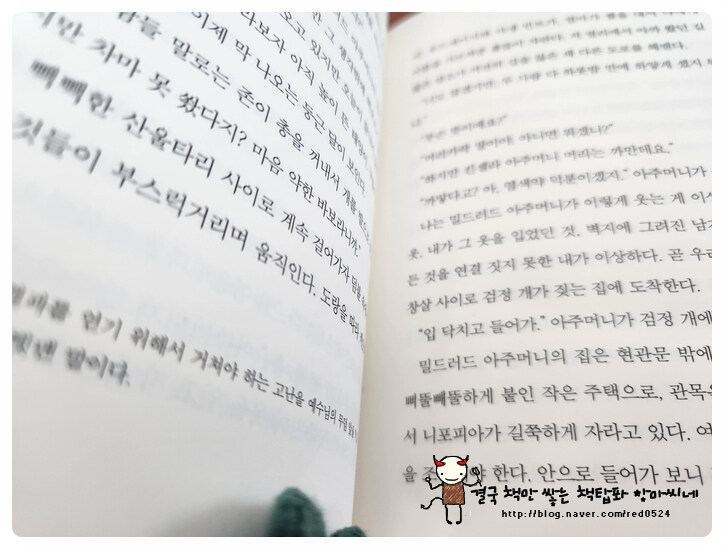 만 그 생각
오고 있지만 오늘이
라보자 아직 높이 뜬
이제 막 나오는 둥근 달이 보인다.
들 말로는 존이 총을 꺼내서 개를
지만 차마 못 쐈다지? 마음 약한 바보라니까."
빽빽한 산울타리 사이로 계속 걸어가자 덤불
것들이 부스럭거리며 움직인다. 도랑을 따라
얻기 위해서 거쳐야 하는 고난을 예수님의 무덤
빗댄 말이다.
"무슨 뜻이에요?"
"머리카락 말이야. 아니면 뭐겠니?"
"하지만 킨셀라 아주머니 머리는 까만데요."
"까맣다고? 아, 염색약 덕분이겠지." 아주머니가
나는 밀드러드 아주머니가 이렇게 웃는 게 이상
옷, 내가 그 옷을 입었던 것, 벽지에 그려진 남자
든 것을 연결 짓지 못한 내가 이상하다. 곧 우리
창살 사이로 검정 개가 짖는 집에 도착한다.
"입 닥치고 들어가." 아주머니가 검정 개에
밀드러드 아주머니의 집은 현관문 밖에
삐뚤빼뚤하게 붙인 작은 주택으로, 관목
서 니포피아가 길쭉하게 자라고 있다. 여
을 조 야 한다. 안으로 들어가 보니
결국 책만 쌓는 책탑파 항마씨네
http://blog.naver.com/red0524